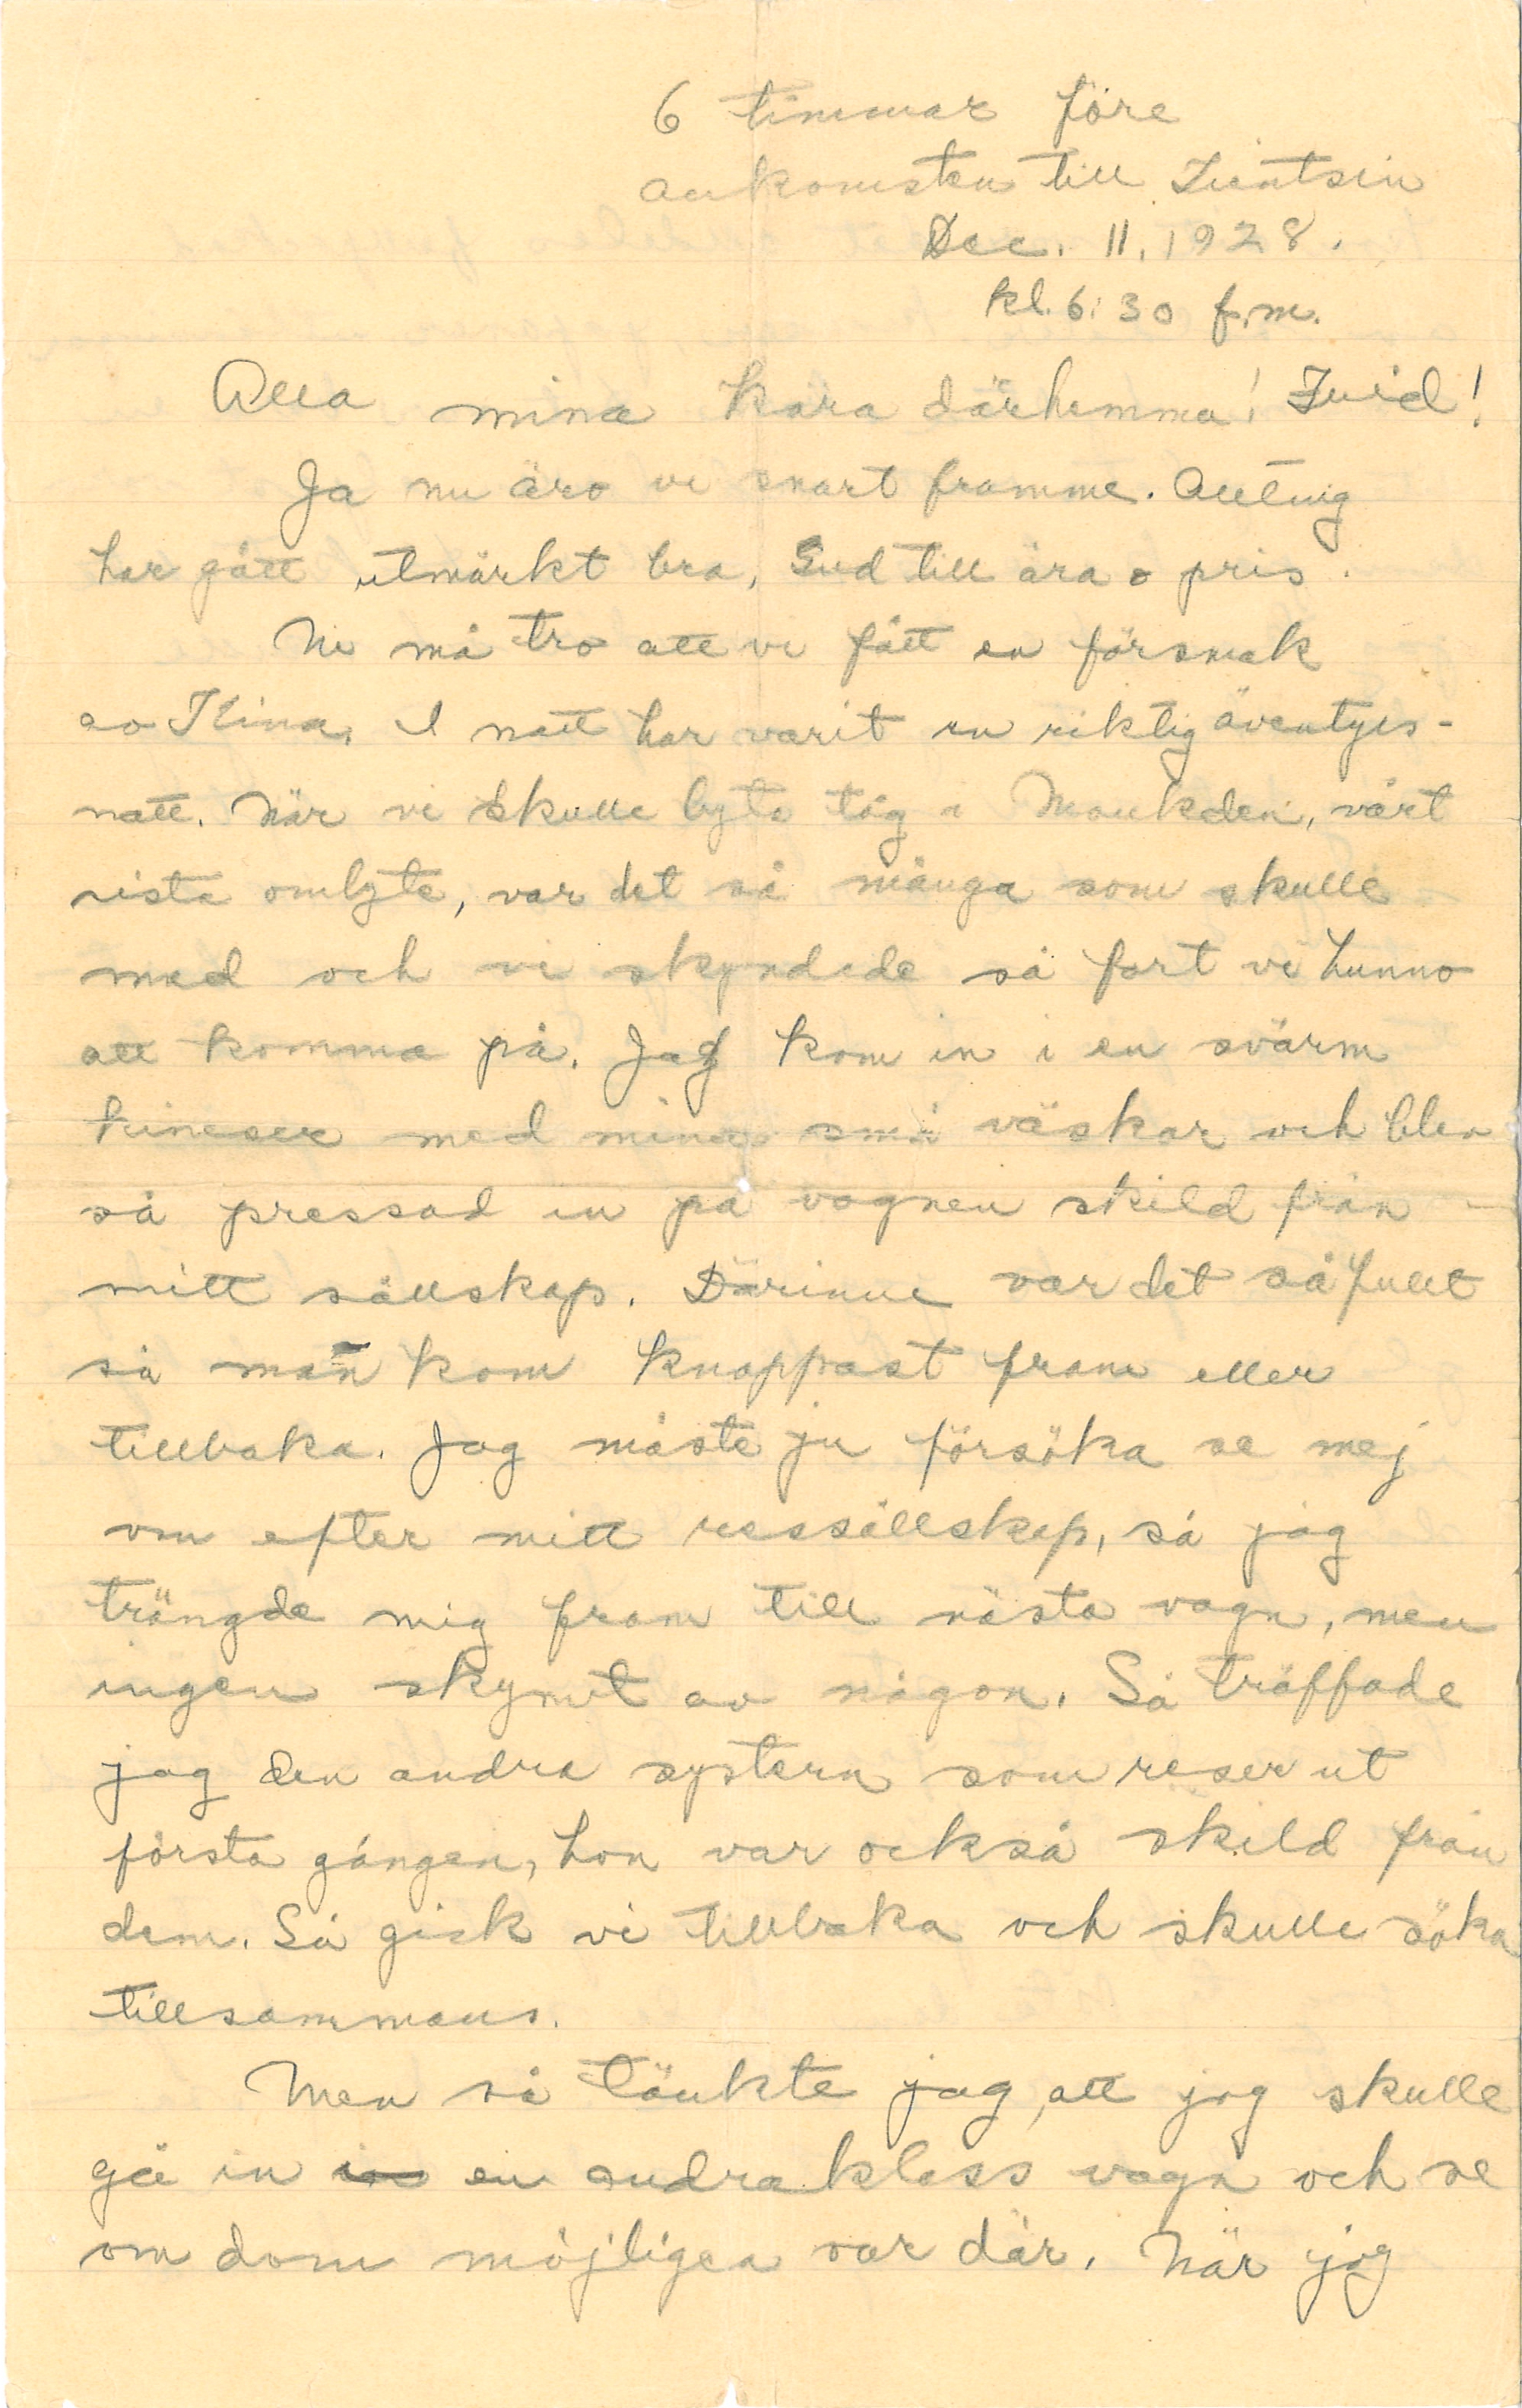 6 timmar före
ankomsten till Tientsin
Dec. 11, 1928.
kl. 6:30 f.m.
Alla mina kära därhemma! Frid!
Ja nu äro vi snart framme. Allting
har gått utmärkt bra, Gud till ära o pris.
Ni må tro att vi fått en försmak
av Kina. I natt har varit en riktig äventyrs-
natt. När vi skulle byta tåg i Moukden, vårt
sista ombyte, var det så många som skulle
med och vi skyndade så fort vi hunno
att komma på. Jag kom in i en svärm
kineser med mina små väskor och blev
så pressad in på vagnen skild från
mitt sällskap. Därinne var det så fullt
så man kom knappast fram eller
tillbaka. Jag måste ju försöka se mej
om efter mitt ressällskap, så jag
trängde mig fram till nästa vagn, men
ingen skymt av någon. Så träffade
jag den andra systern som reser ut
första gången, hon var också skild från
dem. Så gick vi tillbaka och skulle söka
tillsammans.
Men så tänkte jag, att jag skulle
gå in en andraklass vagn och se
om dom möjligen var där. När jag